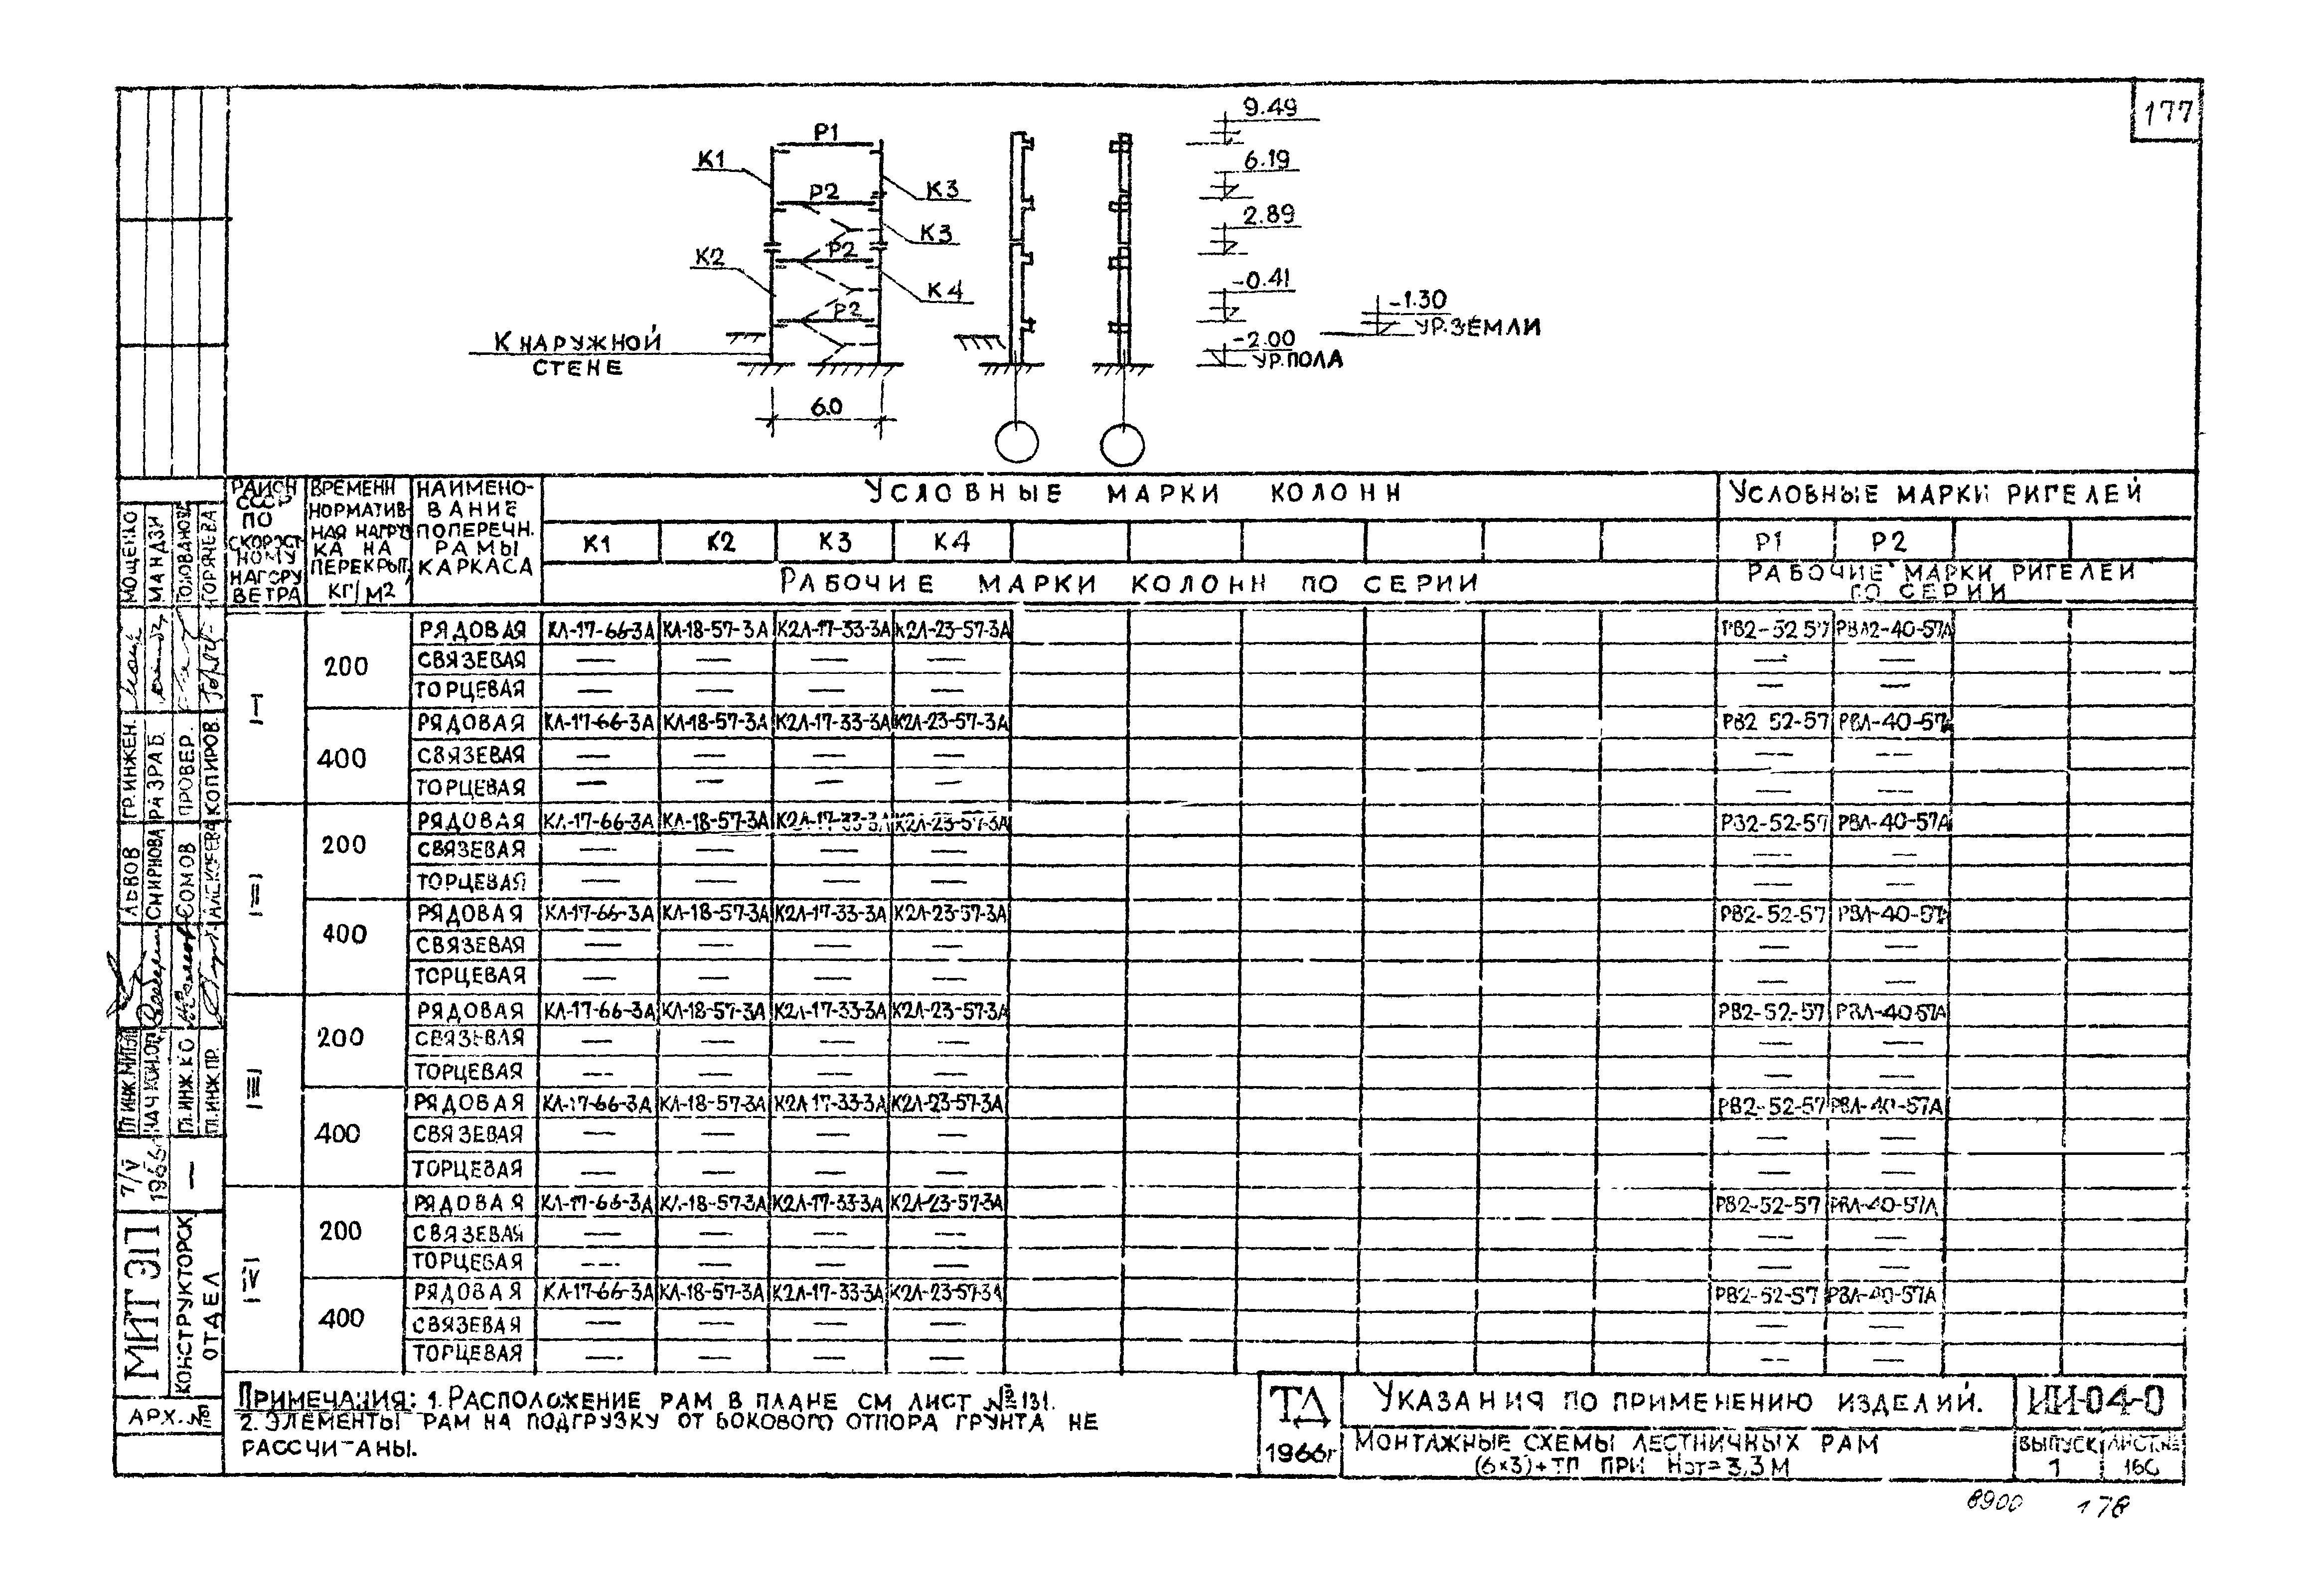 177
9.49
6.19
2.89
-0.41
-1.30
УР.ЗЕМЛИ
-2.00
УР.ПОЛА
Р1
К1
К3
Р2
К3
Р2
К2
К4
Р2
К НАРУЖНОЙ
СТЕНЕ
6.0
РАЙОН СССР ПО СКОРОСТНОМУ НАПОРУ ВЕТРА
ВРЕМЕНН НОРМАТИВНАЯ НАГРУЗКА НА ПЕРЕКРЫТ, КГ/М2
НАИМЕНОВАНИЕ ПОПЕРЕЧН. РАМЫ КАРКАСА
УСЛОВНЫЕ МАРКИ КОЛОНН
УСЛОВНЫЕ МАРКИ РИГЕЛЕЙ
К1 К2 К3 К4 Р1 Р2
РАБОЧИЕ МАРКИ КОЛОНН ПО СЕРИИ
РАБОЧИЕ МАРКИ РИГЕЛЕЙ
ПО СЕРИИ
I
200
РЯДОВАЯ КЛ-17-66-3А КЛ-18-57-3А К2Л-17-33-3А К2Л-23-57-3А РВ2-52 57 РВЛ2-40-57А
СВЯЗЕВАЯ — — — — — —
ТОРЦЕВАЯ — — — — — —
400
РЯДОВАЯ КЛ-17-66-3А КЛ-18-57-3А К2Л-17-33-3А К2Л-23-57-3А РВ2 52-57 РВЛ-40-57А
СВЯЗЕВАЯ — — — — — —
ТОРЦЕВАЯ — — — — — —
II
200
РЯДОВАЯ КЛ-17-66-3А КЛ-18-57-3А К2Л-17-33-3А К2Л-23-57-3А РВ2-52-57 РВЛ-40-57А
СВЯЗЕВАЯ — — — — — —
ТОРЦЕВАЯ — — — — — —
400
РЯДОВАЯ КЛ-17-66-3А КЛ-18-57-3А К2Л-17-33-3А К2Л-23-57-3А РВ2-52-57 РВЛ-40-57А
СВЯЗЕВАЯ — — — — — —
ТОРЦЕВАЯ — — — — — —
III
200
РЯДОВАЯ КЛ-17-66-3А КЛ-18-57-3А К2Л-17-33-3А К2Л-23-57-3А РВ2-52-57 РВЛ-40-57А
СВЯЗЕВАЯ — — — — — —
ТОРЦЕВАЯ — — — — — —
400
РЯДОВАЯ КЛ-17-66-3А КЛ-18-57-3А К2Л 17-33-3А К2Л-23-57-3А РВ2-52-57 РВЛ-40-57А
СВЯЗЕВАЯ — — — — — —
ТОРЦЕВАЯ — — — — — —
IV
200
РЯДОВАЯ КЛ-17-66-3А КЛ-18-57-3А К2Л-17-33-3А К2Л-23-57-3А РВ2-52-57 РВЛ-40-57А
СВЯЗЕВАЯ — — — — — —
ТОРЦЕВАЯ — — — — — —
400
РЯДОВАЯ КЛ-17-66-3А КЛ-18-57-3А К2Л-17-33-3А К2Л-23-57-3А РВ2-52-57 РВЛ-40-57А
СВЯЗЕВАЯ — — — — — —
ТОРЦЕВАЯ — — — — — —
ПРИМЕЧАНИЯ: 1. РАСПОЛОЖЕНИЕ РАМ В ПЛАНЕ СМ ЛИСТ №131.
2. ЭЛЕМЕНТЫ РАМ НА ПОДГРУЗКУ ОТ БОКОВОГО ОТПОРА ГРУНТА НЕ
РАССЧИТАНЫ.
ТД
1966г
УКАЗАНИЯ ПО ПРИМЕНЕНИЮ ИЗДЕЛИЙ.
МОНТАЖНЫЕ СХЕМЫ ЛЕСТНИЧНЫХ РАМ
(6×3)+ТП ПРИ Нэт=3,3М
ИИ-04-0
ВЫПУСК 1
ЛИСТ №
8900 178
МОЩЕНКО
МАНДЗИ
ГОРЯЧЕВА
ГР.ИНЖЕН.
РАЗРАБ.
ПРОВЕР.
КОПИРОВ.
ЛЬВОВ
СМИРНОВА
СОМОВ
ГЛ.ИНЖ.МИТЭП
НАЧ.КОН.ОТД
ГЛ.ИНЖ.КО
ГЛ.ИНЖ.ПР.
7/V
1966
—
МИТЭП
КОНСТРУКТОРСК
ОТДЕЛ
АРХ. №